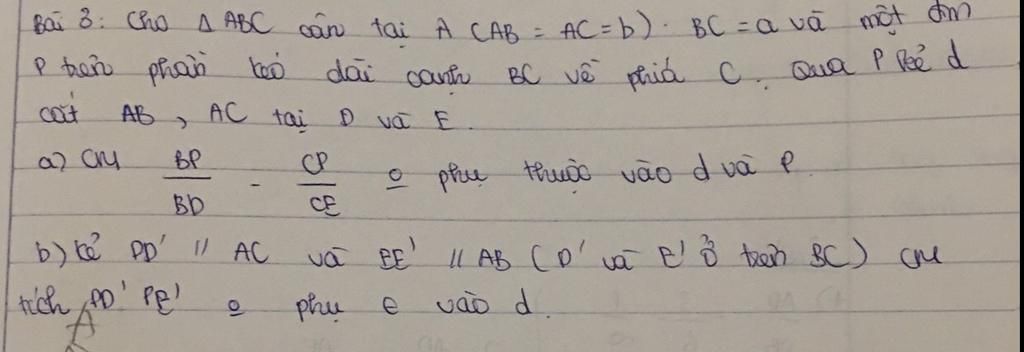 Bài 3: Cho Δ ABC cân tại A (AB = AC = b). BC = a và một đm
P trên phần kéo dài cạnh BC về phía C. Qua P kẻ d
cắt AB, AC tại D và E.
a) CM BP/BD - CP/CE o phụ thuộc vào d và P.
b) Kẻ DD' // AC và EE' // AB (D' và E' ở trên BC) CM
tích PD' PE' o phụ e vào d.
A